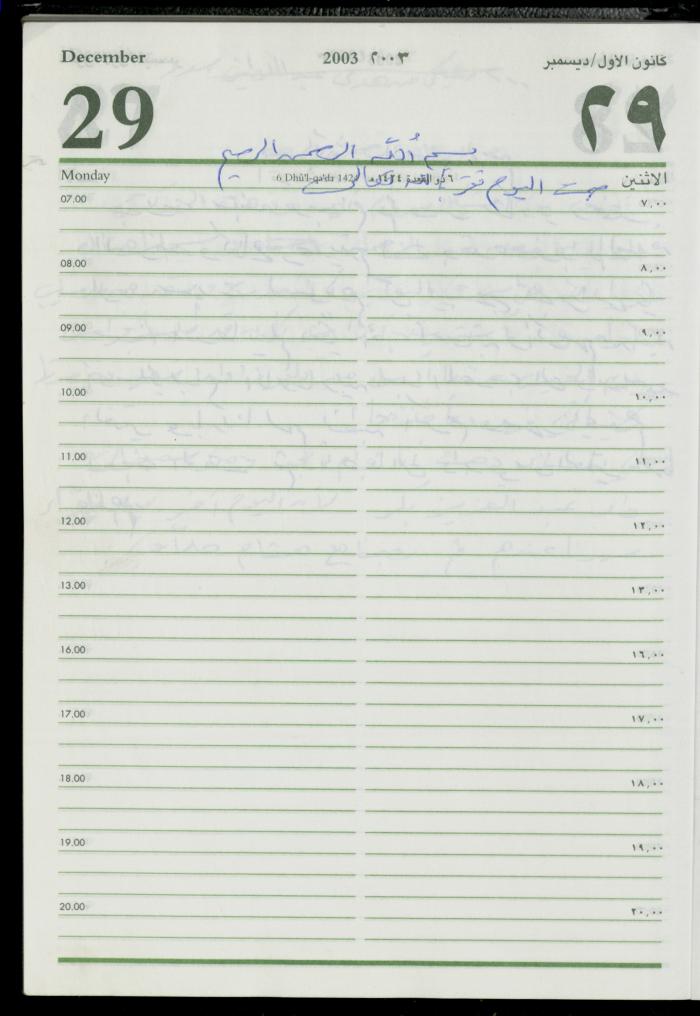 December 2003 ٢٠٠٣ كانون الأول/ديسمبر
29 ٢٩
بسم الله الرحمن الرحيم
Monday 6 Dhū'l-qa'dr 1424 ٦ ذو القعدة ١٤٢٤ هـ الاثنين
صمت اليوم تقربا لله تعالى
07.00 ٧,٠٠
08.00 ٨,٠٠
09.00 ٩,٠٠
10.00 ١٠,٠٠
11.00 ١١,٠٠
12.00 ١٢,٠٠
13.00 ١٣,٠٠
16.00 ١٦,٠٠
17.00 ١٧,٠٠
18.00 ١٨,٠٠
19.00 ١٩,٠٠
20.00 ٢٠,٠٠